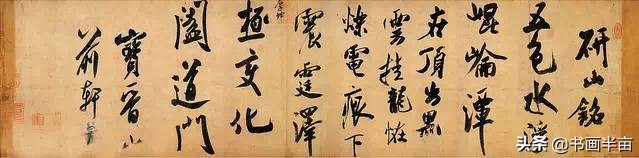 研山銘
五色水浮
崐崘潭
在頂出黑
雲挂龍怪
爍電痕下
震霆澤
厚坤
極變化
闔道門
寶晉山
前軒書
头条 @书画半亩